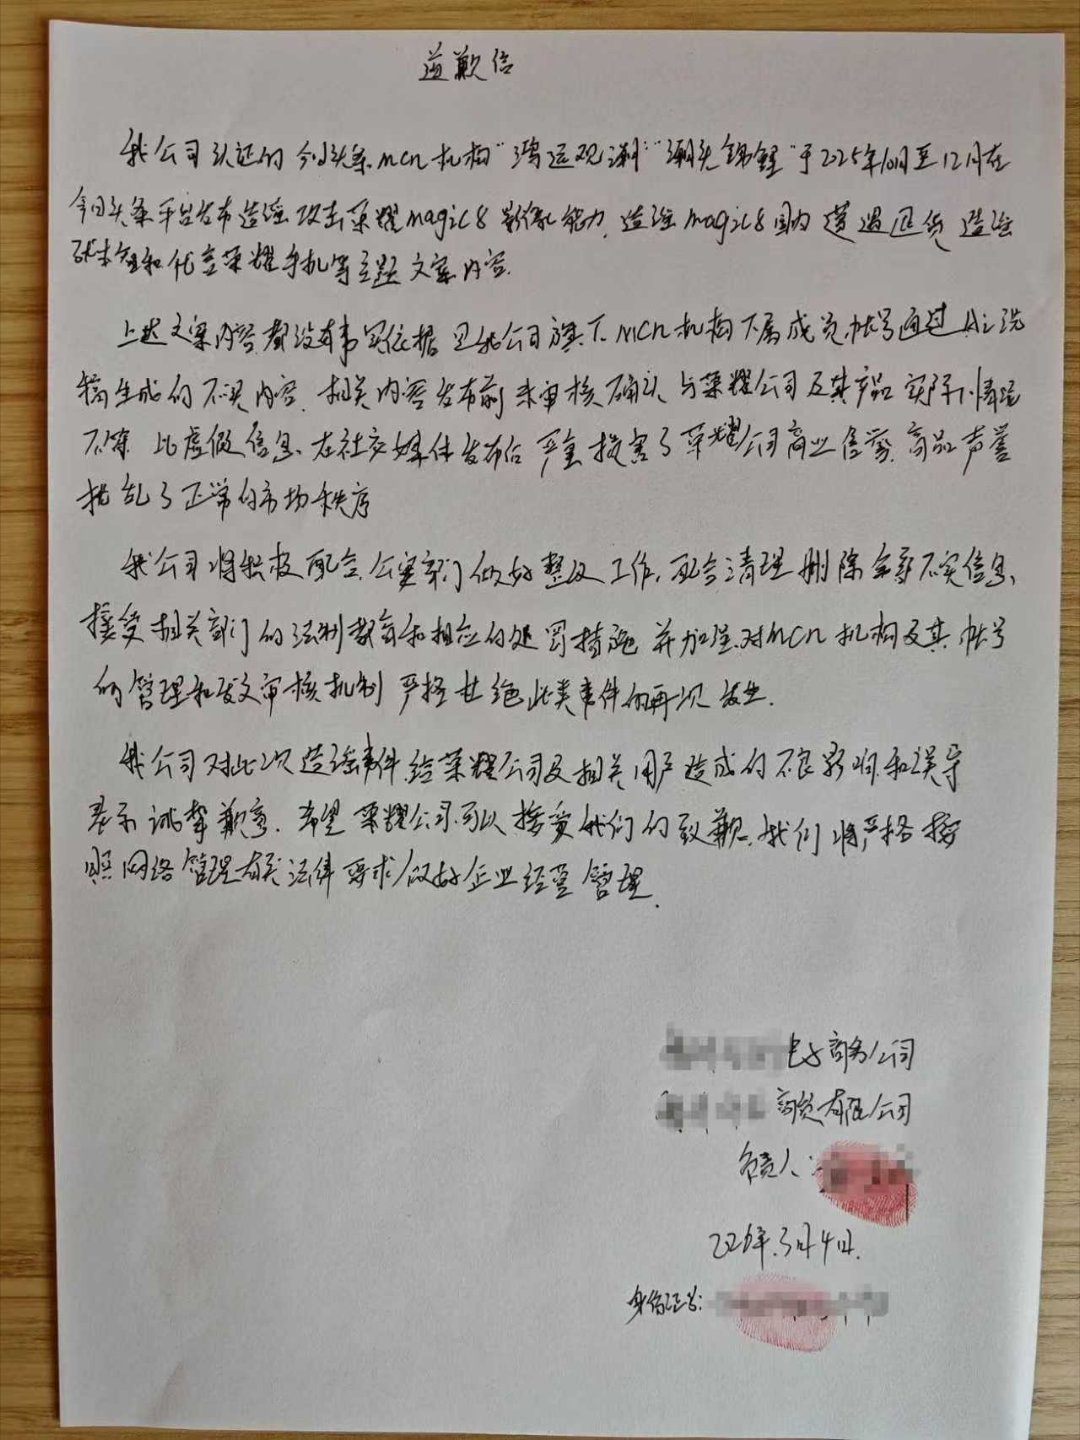 道歉信
我公司认证的今日头条MCN机构"鸿运观潮""潮头锦鲤"于2025年10月至12月在
今日头条平台发布造谣攻击荣耀magic8影像能力,造谣magic8国内遭遇退货造谣
和代言荣耀手机等主题文案内容.
上述文案内容都没有事实依据 是我公司旗下MCN机构下属成员帐号通过Ai洗
稿生成的不实内容.相关内容发布前未审核确认 与荣耀公司及其产品实际情况
不符 此虚假信息在社交媒体发布后严重损害了荣耀公司商业信誉、商品声誉
扰乱了正常的市场秩序
我公司将积极配合公安部门做好整改工作,配合清理删除全部不实信息,
接受相关部门的法制教育和相应的处罚措施 并加强对MCN机构及其帐号
的管理和发文审核机制 严格杜绝此类事件的再次发生.
我公司对此次造谣事件给荣耀公司及相关用户造成的不良影响和误导
表示诚挚歉意.希望荣耀公司可以接受我们的致歉.我们将严格按
照网络管理有关法律要求做好企业经营管理.
电子商务公司
商贸有限公司
负责人:
2026年.3月4日.
身份证号: